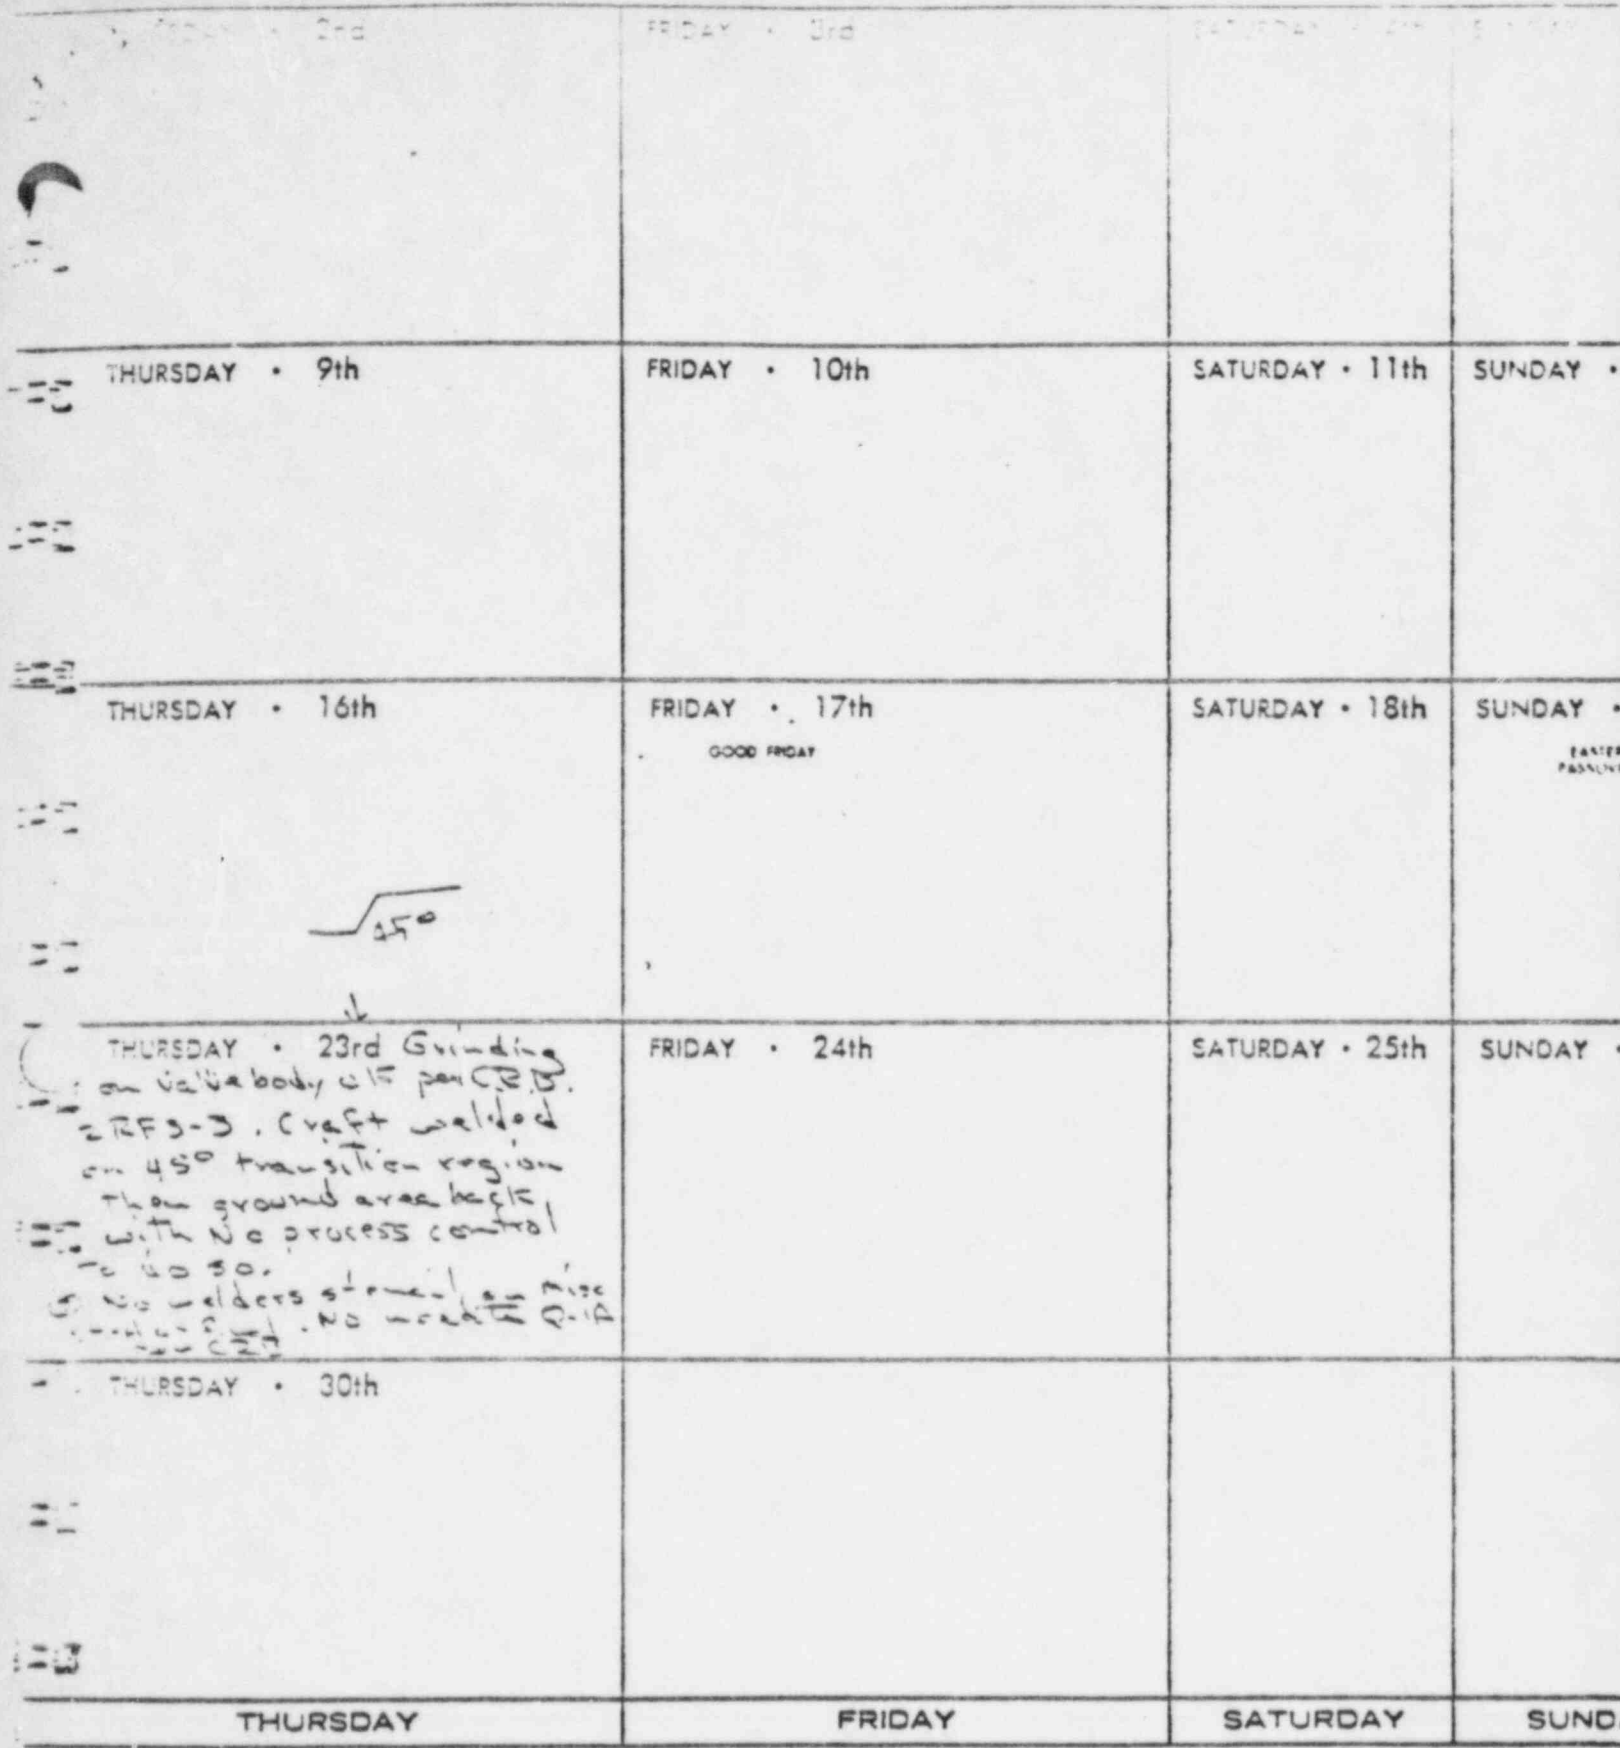 2nd
FRIDAY • 3rd
THURSDAY • 9th
FRIDAY • 10th
SATURDAY • 11th
SUNDAY •
THURSDAY • 16th
FRIDAY • 17th
GOOD FRIDAY
SATURDAY • 18th
SUNDAY •
45°
THURSDAY • 23rd Grinding
on valve body per
Craft welded
on 45° transition region
then ground area back,
with No process control
to do so.
No welders stencil on
No
FRIDAY • 24th
SATURDAY • 25th
SUNDAY •
THURSDAY • 30th
THURSDAY
FRIDAY
SATURDAY
SUND